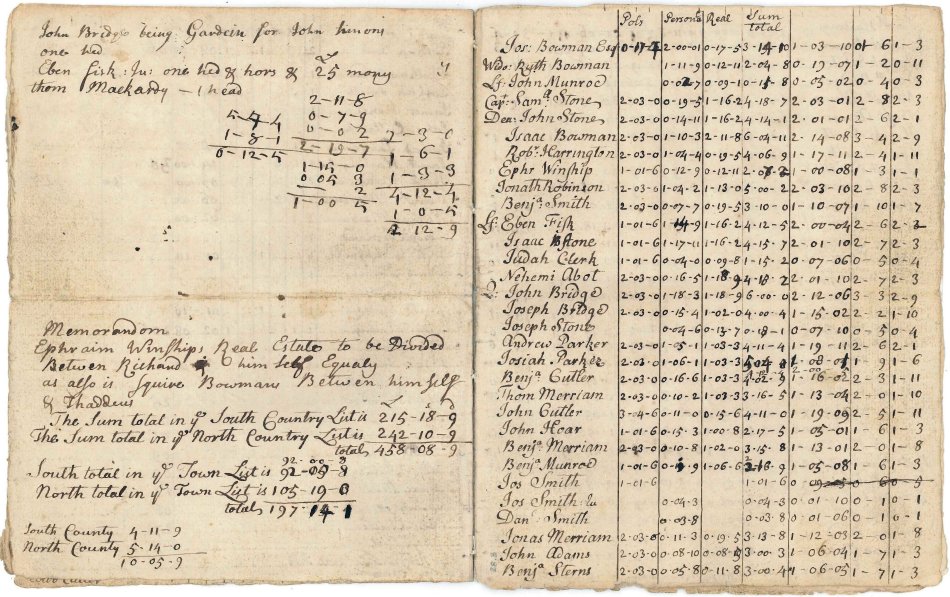 John Bridge being Gardein for John
one hed
Eben fisk Ju: one hed & hors & 25 mony
thom Mackardy — 1 head
2-11-8
5-4-4 0-7-9
1-8-1 0-0 2 7-3-0
0-12-5 2-19-7 1-6-1
1-15-0 1-3-3
0-05 3 4-12-4
2 1-0-5
1-00 5 12-9
Memorandom
Ephraim Winships Real Estate to be Divided
Betwen Richard & him Self Equaly
as also is Squire Bowmans Betwen him Self
& Thaddeus
The Sum total in ye South Country List is 215-18-9
The Sum total in ye North Country List is 242-10-9
total 458-08-9
South total in ye Town List is 92-09-8
North total in ye Town List is 105-19 0
total 197-14-1
South County 4-11-9
North County 5-14-0
10-05-9
Pols Persona Real Sum total
Jos: Bowman Esq 0-17-4 2-00-0 0-17-5 3-14-10 1-03-10 6 1-3
Wido: Ruth Bowman 1-11-9 0-12-11 2-04-8 0-19-07 1-2 0 11
Lt John Munroe 0-2-7 0-09-10 0-05-02 0-4 0-3
Capt: Saml Stone 2-03-0 0-19-5 1-16-2 4-18-7 2-03-01 2-8 2-3
Dea: John Stone 2-03-0 0-14-11 1-16-2 4-14-1 2-01-01 2-6 2-1
Isaac Bowman 2-03-0 1-10-3 2-11-8 6-04-11 2-14-08 3-4 2-9
Robt Harrington 2-03-0 1-04-4 0-19-5 4-06-9 1-17-11 2-4 1-11
Ephr Winship 1-01-6 0-12-9 0-12-11 1-00-08 1-3 1-1
Jonath Robinson 2-03-0 1-04-2 1-13-0 5-00-2 2-03-10 2-8 2-3
Benja Smith 2-03-0 0-7-7 0-19-5 3-10-0 1-10-07 1-10 1-7
Lt: Eben Fisk 1-01-6 1-14-9 1-16-2 4-12-5 2-00-04 2-6 2-2
Isaac Stone 1-01-6 1-17-11 1-16-2 4-15-7 2-01-10 2-7 2-3
Judah Clerk 1-01-6 0-04-0 0-09-8 1-15-2 0-07-06 0-5 0-4
Nehemi Abot 2-03-0 0-16-5 1-18-9 2-01-10 2-7 2-3
D: John Bridge 2-03-0 1-18-3 1-18-9 6-00-0 2-12-06 3-3 2-9
Joseph Bridge 2-03-0 0-15-4 1-02-0 4-00-4 1-15-02 2-2 1-10
Joseph Stone 0-04-6 0-13-7 0-18-1 0-07-10 0-5 0-4
Andrew Parker 2-03-0 1-05-1 1-03-3 4-11-4 1-19-11 2-6 2-1
Josiah Parker 2-03-0 0-06-1 0-11-3 1-9 1-6
Benja Cutler 2-03-0 0-16-6 1-03-3 1-16-02 2-3 1-11
Thom Merriam 2-03-0 0-10-2 1-03-3 3-16-5 1-13-04 2-0 1-10
John Cutler 3-04-6 0-11-0 0-15-6 4-11-0 1-19-09 2-5 1-11
John Hoar 1-01-6 0-15-3 1-00-8 2-17-5 1-05-01 1-6 1-3
Benja Merriam 2-03-0 0-10-8 1-02-0 3-15-8 1-13-01 2-0 1-8
Benja Munroe 1-01-6 1-06-6 1-05-08 1-6 1-3
Jos Smith 1-01-6 0-09-05 0-6 0-5
Jos Smith 0-04-3 0-04-3 0-01-10 0-1 0-1
Dan: Smith 0-03-8 0-03-8 0-01-06 0-1 0-1
Jonas Merriam 2-03-0 0-11-3 0-19-5 3-13-8 1-12-03 2-0 1-8
John Adams 2-03-0 0-08-10 0-08-9 3-00-1 1-06-04 1-7 1-3
Benja Sterns 2-03-0 0-05-8 0-11-8 3-00-4 1-06-05 1-7 1-3